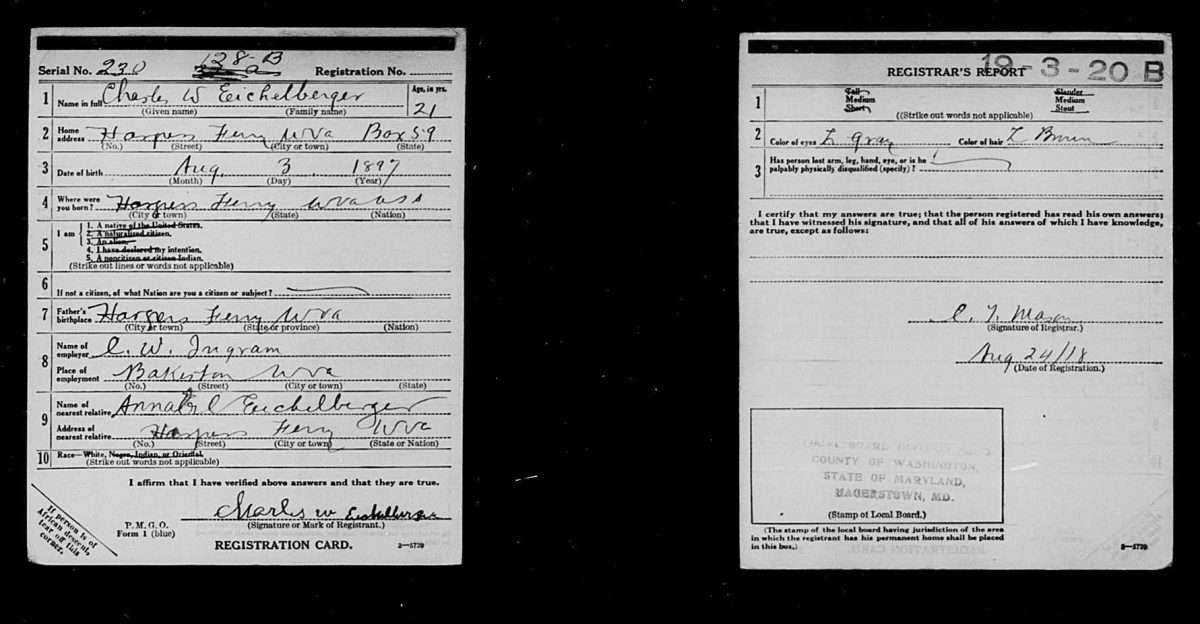 Serial No. 230 128-B Registration No.
1 Name in full Charles W Eichelberger Age, in yrs. 21
(Given name) (Family name)
2 Home address Harpers Ferry W Va Box 59
(No.) (Street) (City or town) (State)
3 Date of birth Aug. 3 1897
(Month) (Day) (Year)
4 Where were you born? Harpers Ferry W Va U S A
(City or town) (State) (Nation)
5 I am
1. A native of the United States.
2. A naturalized citizen.
3. An alien.
4. I have declared my intention.
5. A noncitizen or citizen Indian.
(Strike out lines or words not applicable)
6 If not a citizen, of what Nation are you a citizen or subject?
7 Father's birthplace Harpers Ferry W Va
(City or town) (State or province) (Nation)
8 Name of employer C. W. Ingram
Place of employment Bakerton W Va
(No.) (Street) (City or town) (State)
9 Name of nearest relative Eichelberger
Address of nearest relative Harpers Ferry W Va
(No.) (Street) (City or town) (State or Nation)
10 Race—White, Negro, Indian, or Oriental.
(Strike out words not applicable)
I affirm that I have verified above answers and that they are true.
Charles W Eichelberger
(Signature or Mark of Registrant.)
P. M. G. O.
Form 1 (blue)
REGISTRATION CARD. 3—5739
If person is of
African descent,
tear off this
corner.
19-3-20 B
REGISTRAR'S REPORT
1 Tall Slender
Medium Medium
Short Stout
((Strike out words not applicable)
2 Color of eyes L Gray Color of hair L Brown
3 Has person lost arm, leg, hand, eye, or is he
palpably physically disqualified (specify)?
I certify that my answers are true; that the person registered has read his own answers;
that I have witnessed his signature, and that all of his answers of which I have knowledge,
are true, except as follows:
C. T. Mason
(Signature of Registrar.)
Aug 24/18
(Date of Registration.)
LOCAL BOARD DIVISION
COUNTY OF WASHINGTON,
STATE OF MARYLAND,
HAGERSTOWN, MD.
(Stamp of Local Board.)
(The stamp of the local board having jurisdiction of the area
in which the registrant has his permanent home shall be placed
in this box.) 3—5739